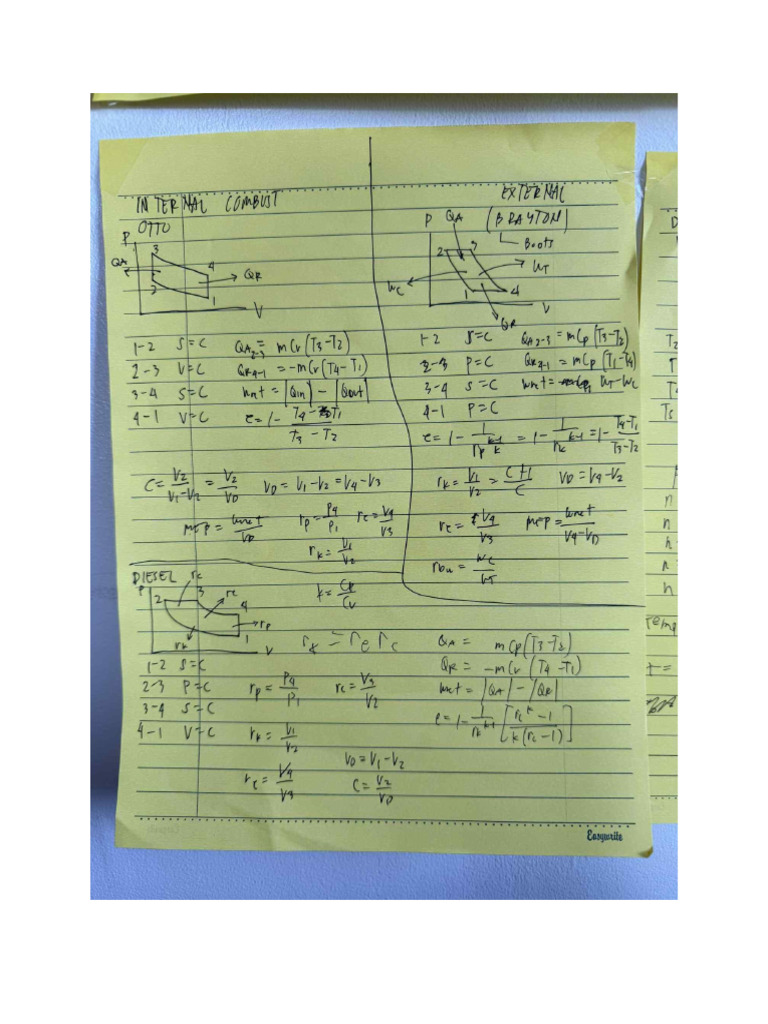 INTERNAL COMBUST
OTTO
P
3
4
QA
QR
2
1
V
1-2 S=C QA2-3 = mCv(T3-T2)
2-3 V=C QR4-1 = -mCv(T4-T1)
3-4 S=C Wnet = |Qin| - |Qout|
4-1 V=C e = 1 - (T4-T1)/(T3-T2)
C = V2/(V1-V2) = V2/VD VD = V1-V2 = V4-V3
mep = Wnet/VD rp = P4/P1 re = V4/V3
rk = V1/V2
k = Cp/Cv
EXTERNAL
(BRAYTON)
P QA
2 3
WT
WC
1 4
V
QR
1-2 S=C QA2-3 = mCp(T3-T2)
2-3 P=C QR4-1 = mCp(T1-T4)
3-4 S=C Wnet = WT-WC
4-1 P=C
e = 1 - 1/rp^(k-1/k) = 1 - 1/rk^(k-1) = 1 - (T4-T1)/(T3-T2)
rk = V1/V2 = (C+1)/C VD = V4-V2
re = V4/V3 mep = Wnet/(V4-VD)
rbw = WC/WT
DIESEL
P
rc
2 3
re
4
rp
1
rk
V
rk = re rc
1-2 S=C
2-3 P=C rp = P4/P1 rc = V3/V2
3-4 S=C
4-1 V=C rk = V1/V2
re = V4/V3
VD = V1-V2
C = V2/VD
QA = mCp(T3-T2)
QR = -mCv(T4-T1)
Wnet = |QA| - |QR|
e = 1 - 1/rk^(k-1) [(rc^k - 1)/(k(rc-1))]
Easywrite